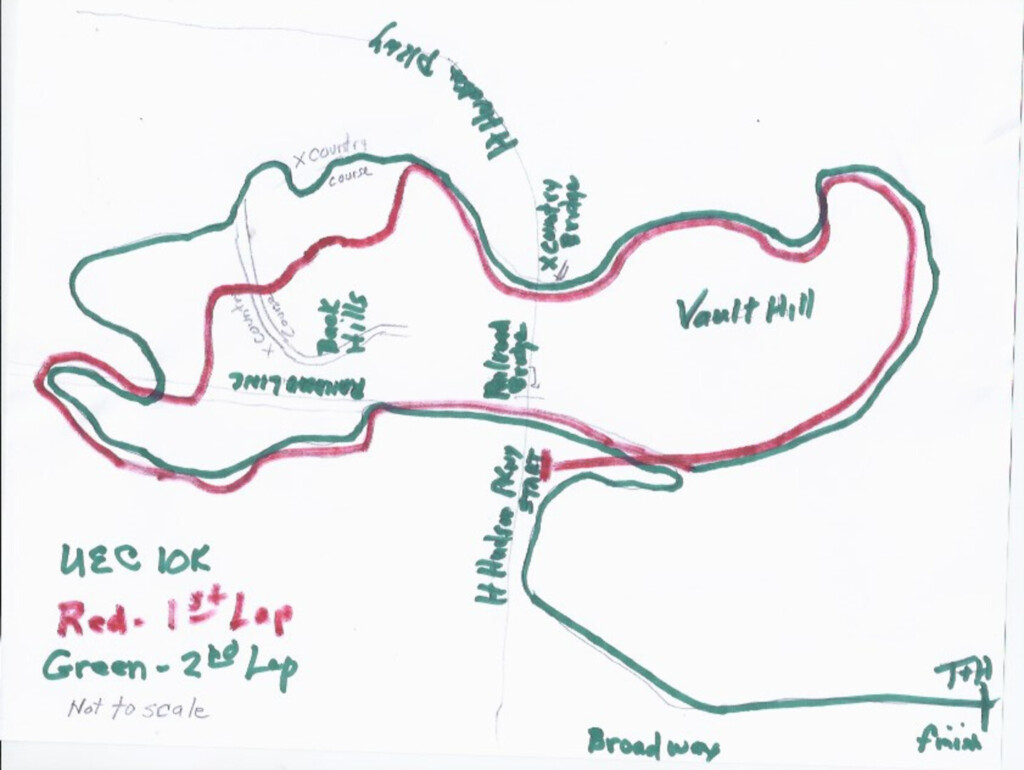 H Hudson Pkwy
X country
course
X country
Bridge
Vault Hill
Back
Hills
X country
course
Railroad
Bridge
RAILROAD LINE
H Hudson Pkwy
START
UEC 10K
Red - 1st Lap
Green - 2nd Lap
Not to scale
T+H
finish
Broadway